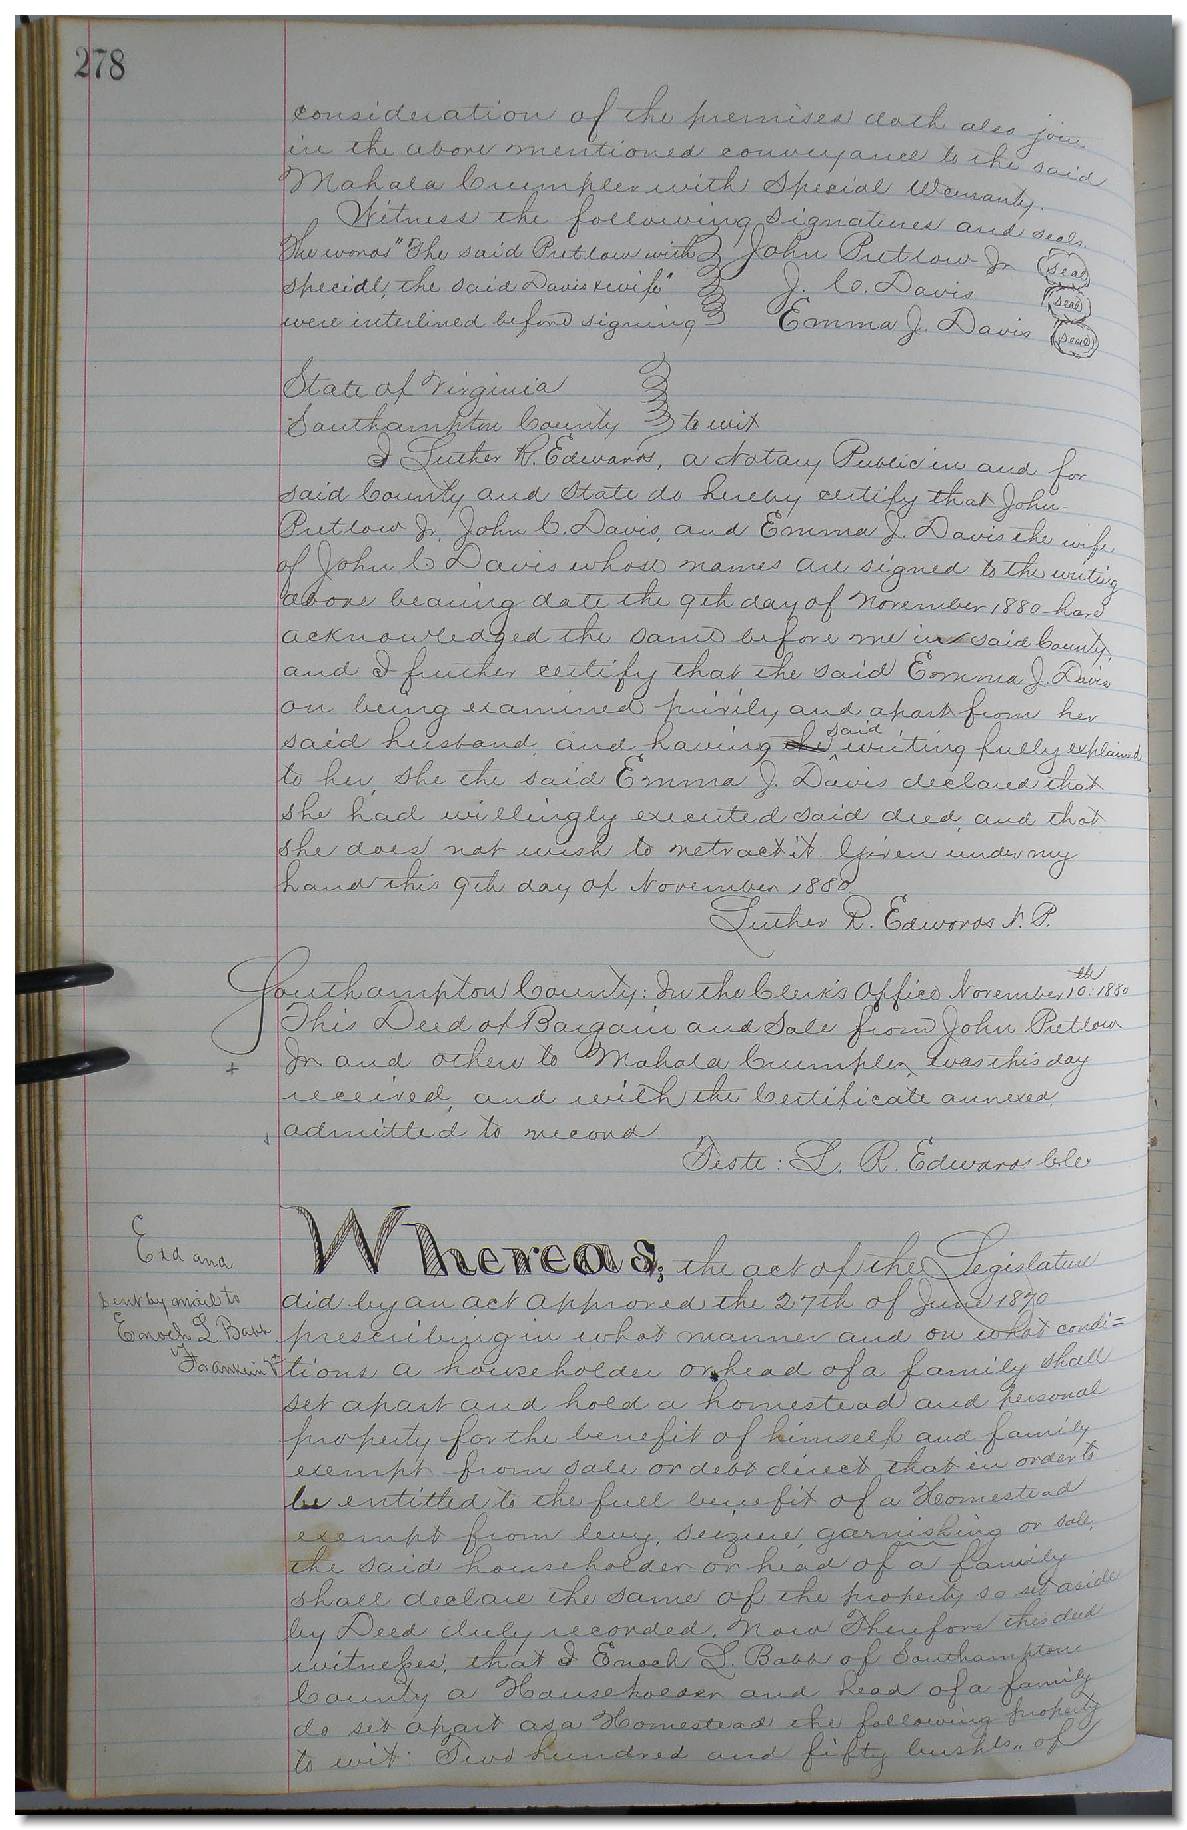 278
consideration of the premises doth also join
in the above mentioned conveyance to the said
Mahala Crumpler with Special Warranty.
Witness the following signatures and seals
The words "The said Pretlow with John Pretlow Jr seal
special, the said Davis & wife" J. C. Davis seal
were interlined before signing Emma J. Davis seal
State of Virginia
Southampton County to wit
I Luther R. Edwards, a Notary Public in and for
said County and State do hereby certify that John
Pretlow Jr, John C. Davis, and Emma J. Davis the wife
of John C Davis whose names are signed to the writing
above bearing date the 9th day of November 1880 have
acknowledged the same before me in said County,
and I further certify that the said Emma J. Davis
on being examined privily and apart from her
said husband, and having the said writing fully explained
to her, she the said Emma J. Davis declared that
she had willingly executed said deed, and that
she does not wish to retract it. Given under my
hand this 9th day of November 1880
Luther R. Edwards N. P.
Southampton County: In the Clerk's Office November 10th: 1880
This Deed of Bargain and Sale from John Pretlow
Jr. and others to Mahala Crumpler, was this day
received, and with the Certificate annexed,
admitted to record
Teste: L. R. Edwards Cle
Exd and
sent by mail to
Enoch L Babb
Franklin Va
Whereas, the act of the Legislature
did by an act approved the 27th of June 1870
prescribing in what manner and on what condi=
tions a householder or head of a family shall
set apart and hold a homestead and personal
property for the benefit of himself and family
exempt from sale or debt direct that in order to
be entitled to the full benefit of a Homestead
exempt from levy, seizure, garnishing or sale,
the said householder or head of a family
shall declare the same of the property so set aside
by Deed duly recorded. Now Therefore this deed
witnesses, that I Enoch L. Babb of Southampton
County a Householder and head of a family
do set apart as a Homestead the following property
to wit: Two hundred and fifty bushls., of